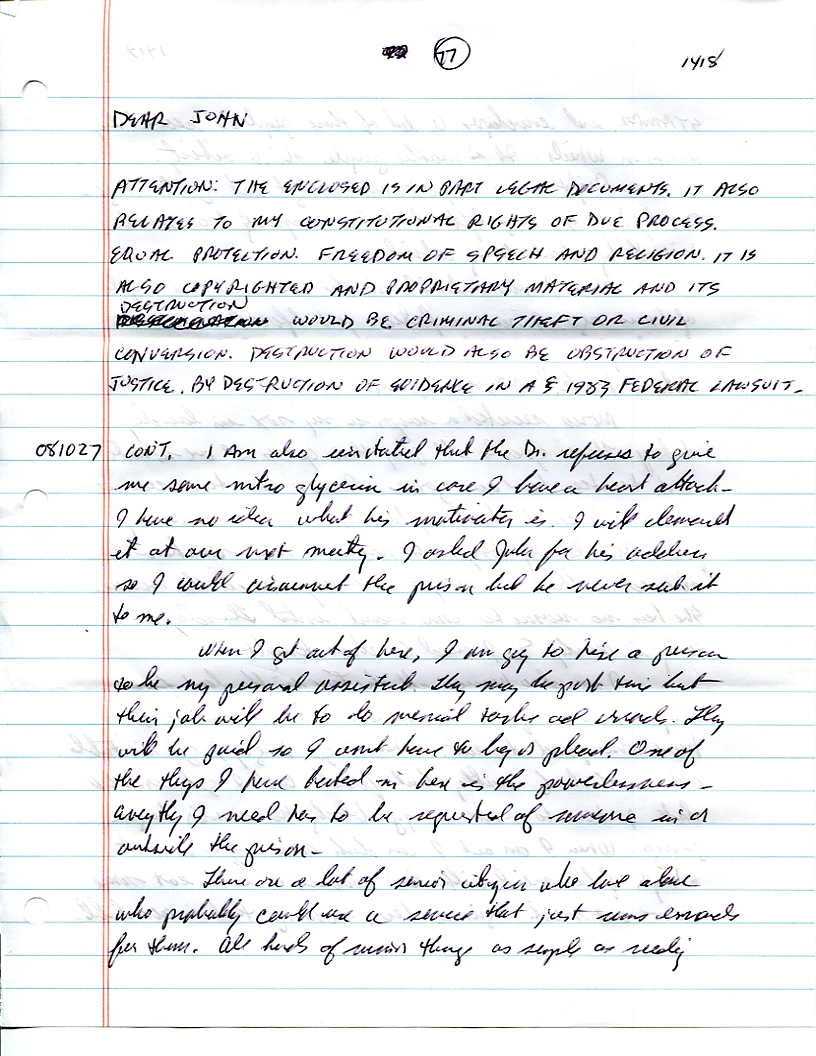 77
1418
DEAR JOHN
ATTENTION: THE ENCLOSED IS IN PART LEGAL DOCUMENTS. IT ALSO
RELATES TO MY CONSTITUTIONAL RIGHTS OF DUE PROCESS.
EQUAL PROTECTION. FREEDOM OF SPEECH AND RELIGION. IT IS
ALSO COPYRIGHTED AND PROPRIETARY MATERIAL AND ITS
DESTRUCTION
WOULD BE CRIMINAL THEFT OR CIVIL
CONVERSION. DESTRUCTION WOULD ALSO BE OBSTRUCTION OF
JUSTICE. BY DESTRUCTION OF EVIDENCE IN A § 1983 FEDERAL LAWSUIT.
081027 CONT. I Am also irritated that the Dr. refuses to give
me some nitro glycerin in case I have a heart attack.
I have no idea what his motivation is. I will demand
it at our next meeting. I asked John for his address
so I could the prison but he never sent it
to me.
When I get out of here, I am going to hire a person
to be my personal assistant. They may be part time but
their job will be to do menial tasks and errands. They
will be paid so I wont have to beg or plead. One of
the things I have hated in here is the powerlessness -
anything I need has to be requested of someone in or
outside the prison -
There are a lot of senior citizens who live alone
who probably could use a service that just runs errands
for them. All kinds of minor things as simple as